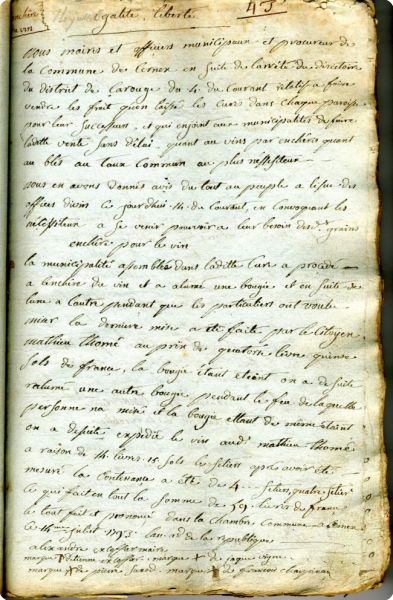 enchère
du vin
égalité, liberté
45
nous maires et officiers municipaux et procureur de
la Commune des Cernex en suite de larreté du directoire
du district de Carouge du 4 du Courant relatif a faire
vendre les froit qu'en laissé les Curé dans chaque paroisse
pour leur successeur, et qui enjoint aux municipalités de faire
laditte vente sans délai, quant au vins par enchères quant
au blés au taux Commun au plus nessesiteur
nous en avons donnés avis du tout au peuple a lissue des
offices divin ce jourdhui 14 du Courant, en convoquant les
nessessiteux a se venir pourvoir a leur besoin des grains
enchère pour le vin
la municipalité assemblée dans laditte Cure a procédé
a lenchère du vin et a alumé une bougie et en suite de
lune a lautre pendant que les particuliers ont voulu
miser la dernière mise a été faite par le Citoyen
mathieu thomé au prix de quatorze livre quinze
sols de france, la bougie étant éteint on a de suite
ralumé une autre bougie pendant le feu de laquelle
personne na misé et la bougie étant de même éteint
on a desuite expédié le vin audt mathieu thomé
a raison de 14 livres 15 sols le setiers après avoir été
mesuré la Contenance a été de 4 setiers, quatre setier
ce qui fait en tout la somme de 59 livres de france
le tout fait et prononcé dans la chambre Commune a Cernex
ce 14me juliet 1793 lan 2d de la république
alexandre maire
marque + détienne marque + de jaque vigne
marque + de pierre marque + de françois